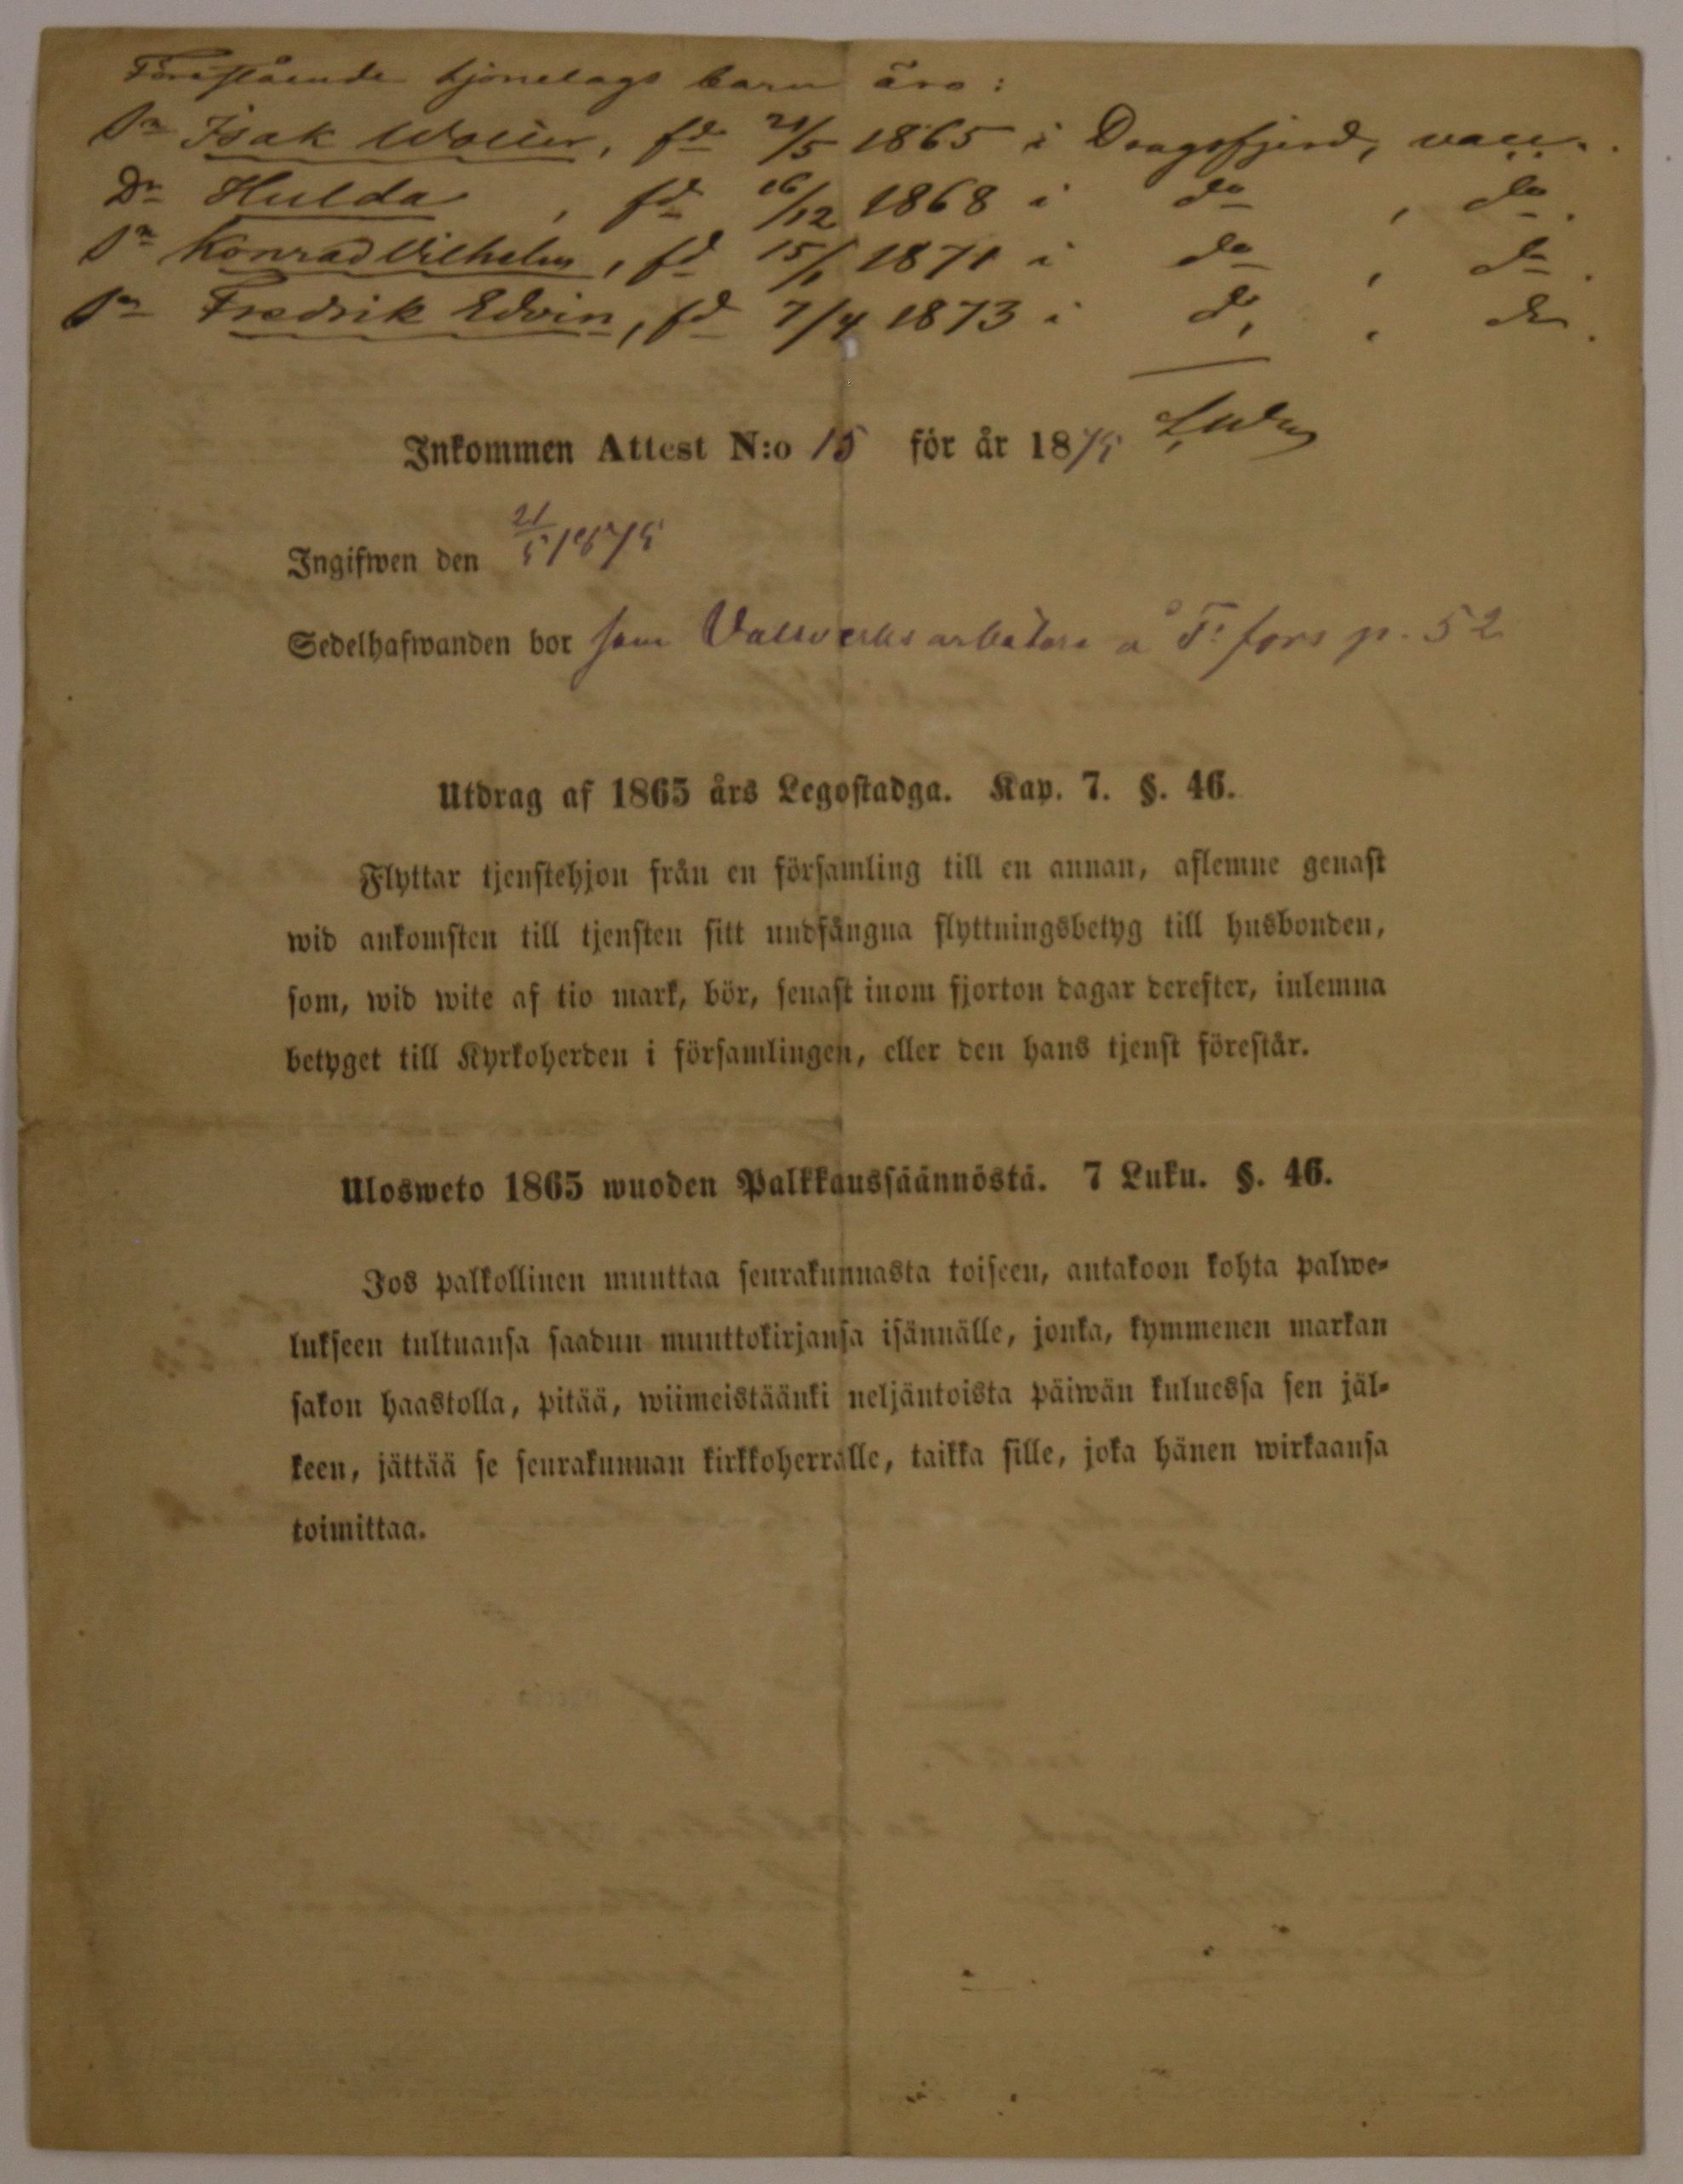 Förestående hjonelags barn äro:
Sn Isak Wolter, fd 21/5 1865 i Dragsfjerd, vacc.
Dr Hulda, fd 16/12 1868 i do, do.
Sn Konrad Vilhelm, fd 15/1 1871 i do, do.
Sn Fredrik Edvin, fd 7/4 1873 i do, do.
Inkommen Attest N:o 15 för år 1875
Ingifwen den 21/5 1875
Sedelhafwanden bor som Valsverksarbetare å F:fors p. 52
Utdrag af 1865 års Legostadga. Kap. 7. §. 46.
Flyttar tjenstehjon från en församling till en annan, aflemne genast
wid ankomsten till tjensten sitt undfångna flyttningsbetyg till husbonden,
som, wid wite af tio mark, bör, senast inom fjorton dagar derefter, inlemna
betyget till Kyrkoherden i församlingen, eller den hans tjenst förestår.
Ulosweto 1865 wuoden Palkkaussäännöstä. 7 Luku. §. 46.
Jos palkollinen muuttaa seurakunnasta toiseen, antakoon kohta palwe-
lukseen tultuansa saadun muuttokirjansa isännälle, jonka, kymmenen markan
sakon haastolla, pitää, wiimeistäänki neljäntoista päiwän kuluessa sen jäl-
keen, jättää se seurakunnan kirkkoherralle, taikka sille, joka hänen wirkaansa
toimittaa.